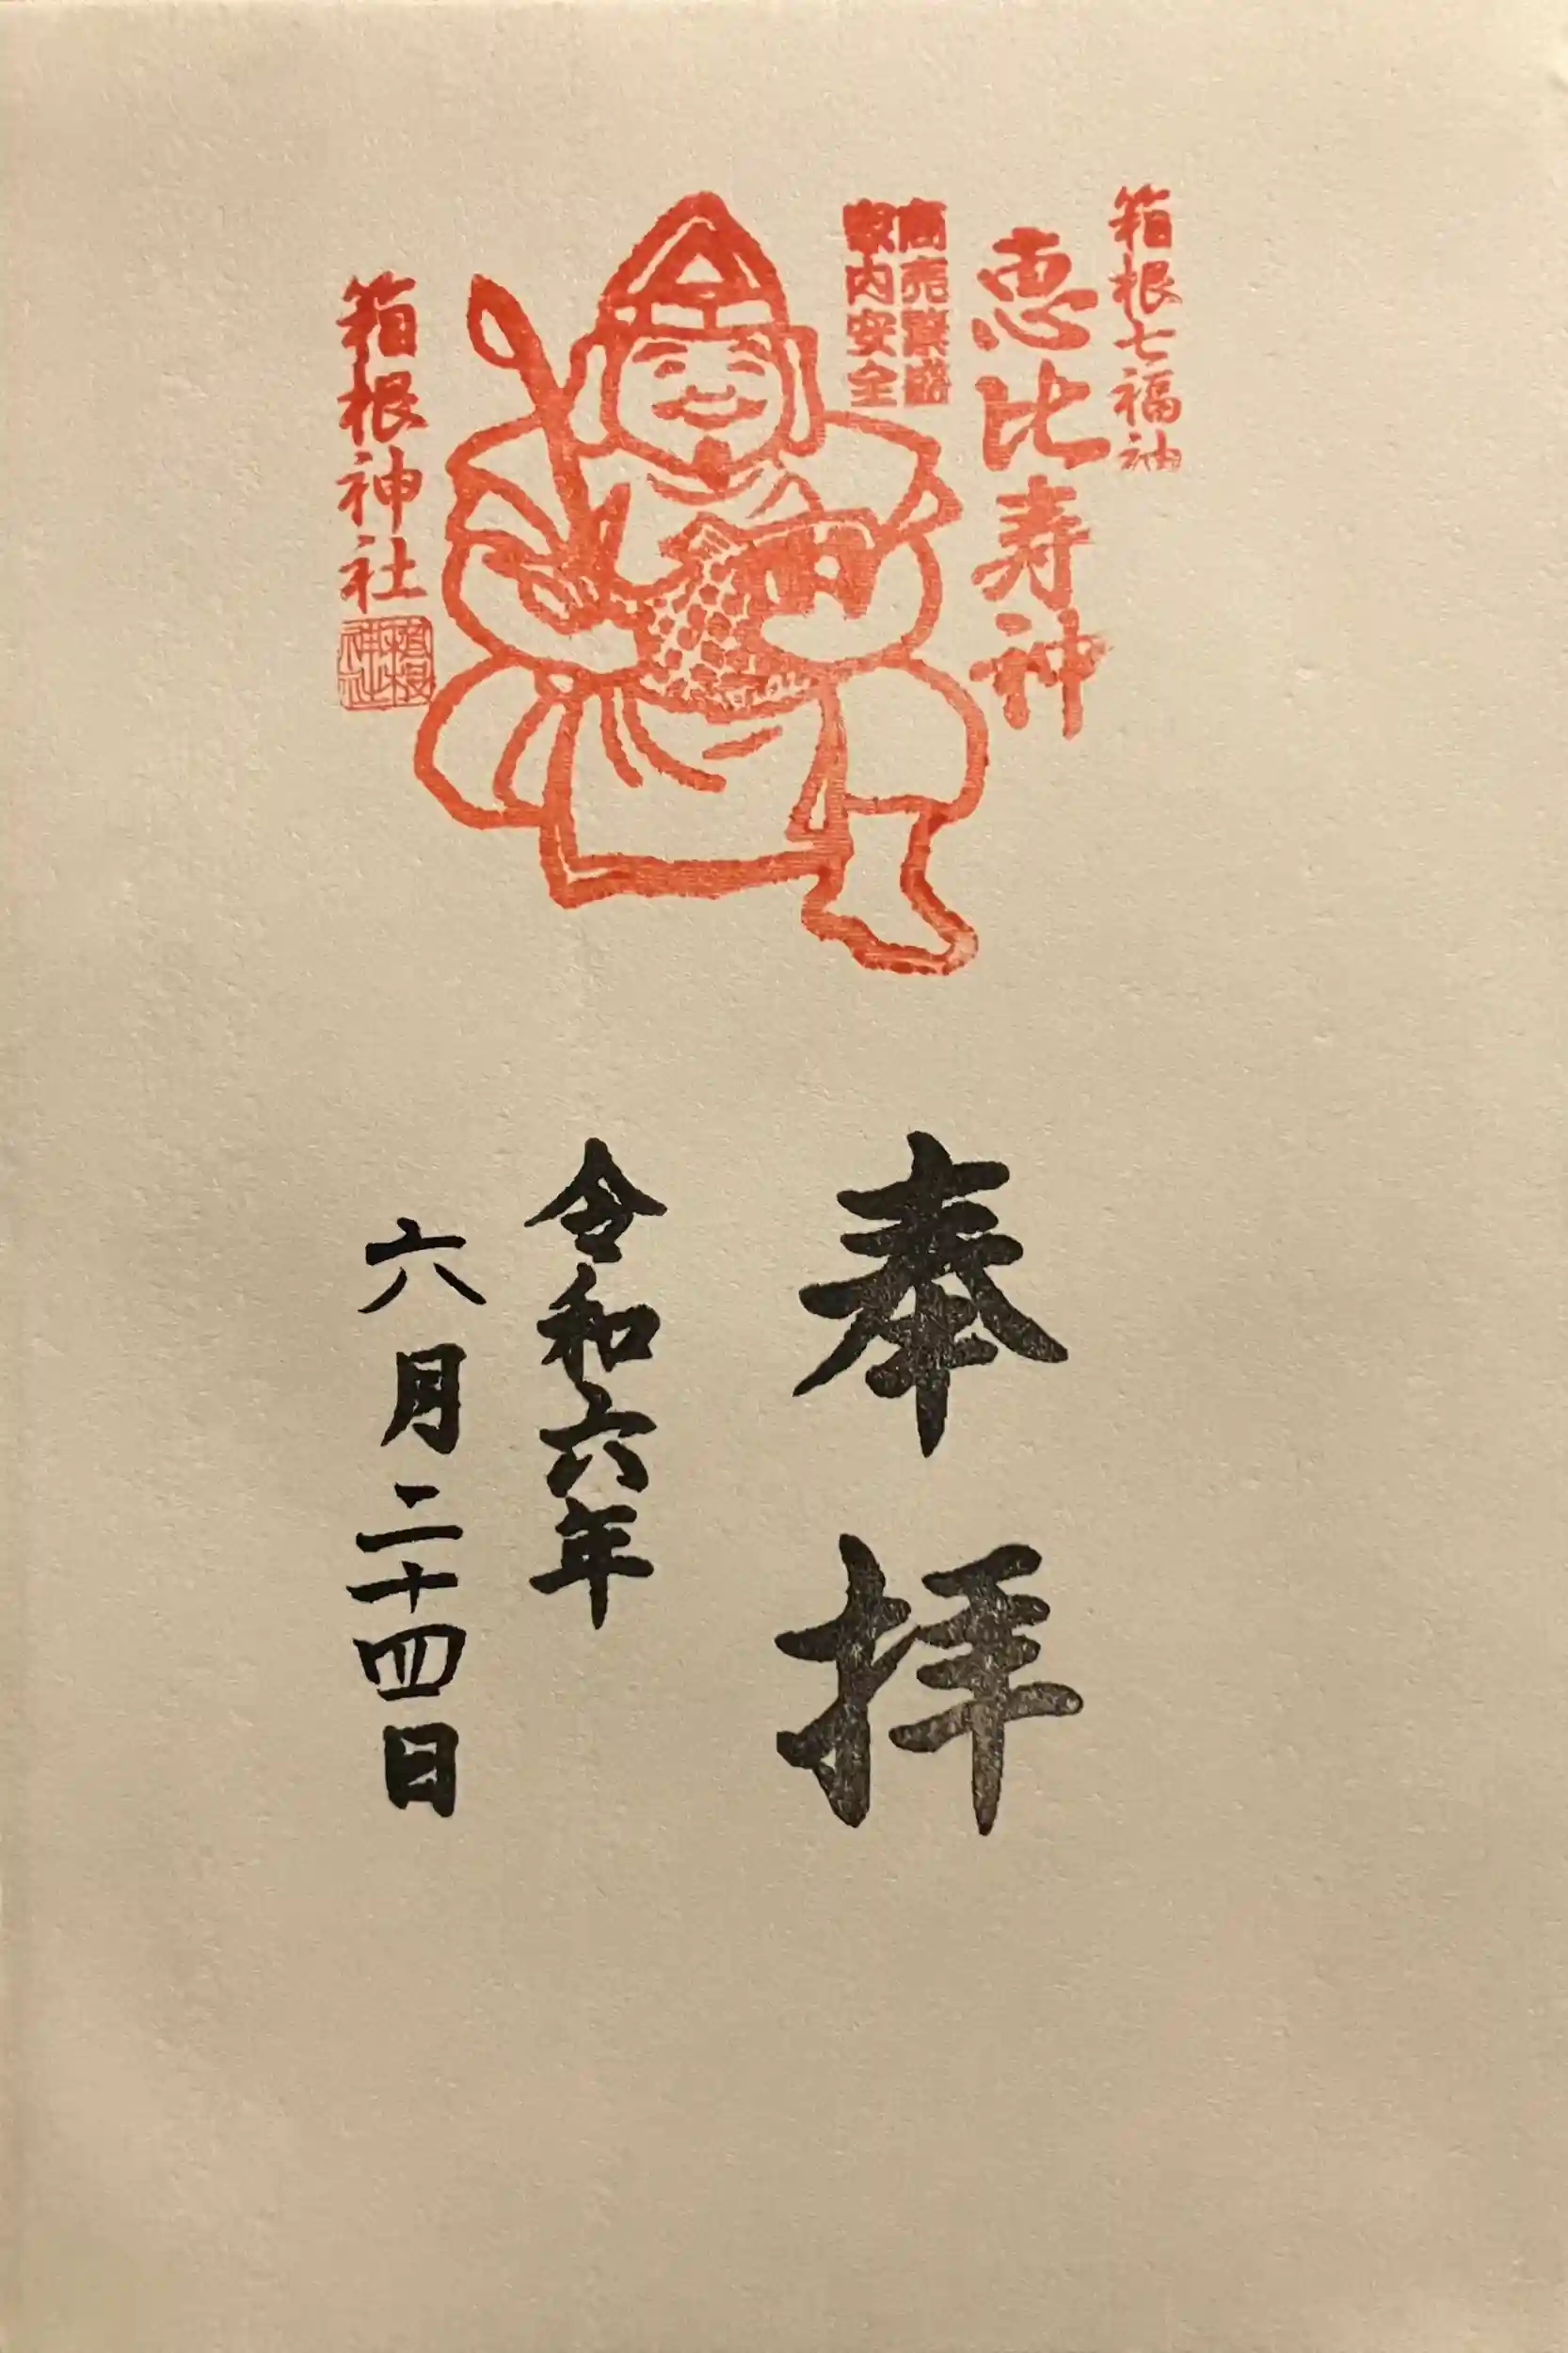 箱根七福神
恵比寿神
商売繁盛
家内安全
箱根神社
箱根
神社
奉拝
令和六年
六月二十四日